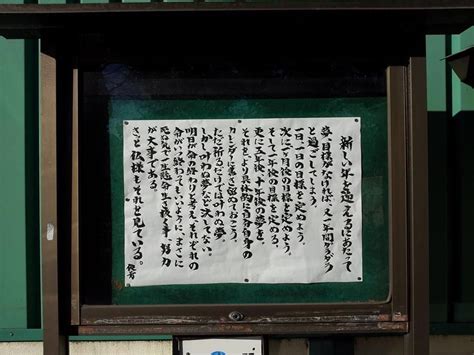 新しい年を迎えるにあたって
夢、目標がなければ、又一年間グダグダ
と過ごしてしまう。
一日一日の目標を定めよう。
次に一ヶ月の目標を定めよう。
そして一年後の目標を定める。
更に五年後、十年後の夢を、
それをより具体的に自分自身の
カレンダーに書き留めておこう。
ただ祈るだけでは叶わぬ夢。
しかし叶わぬ夢など決してない。
明日が命の終わりと考え、それぞれの
命がいつ終わってもいいように、まさに
死ぬ気で一生懸命生き抜く事、努力
が大事である。
きっと仏様もそれを見ている。